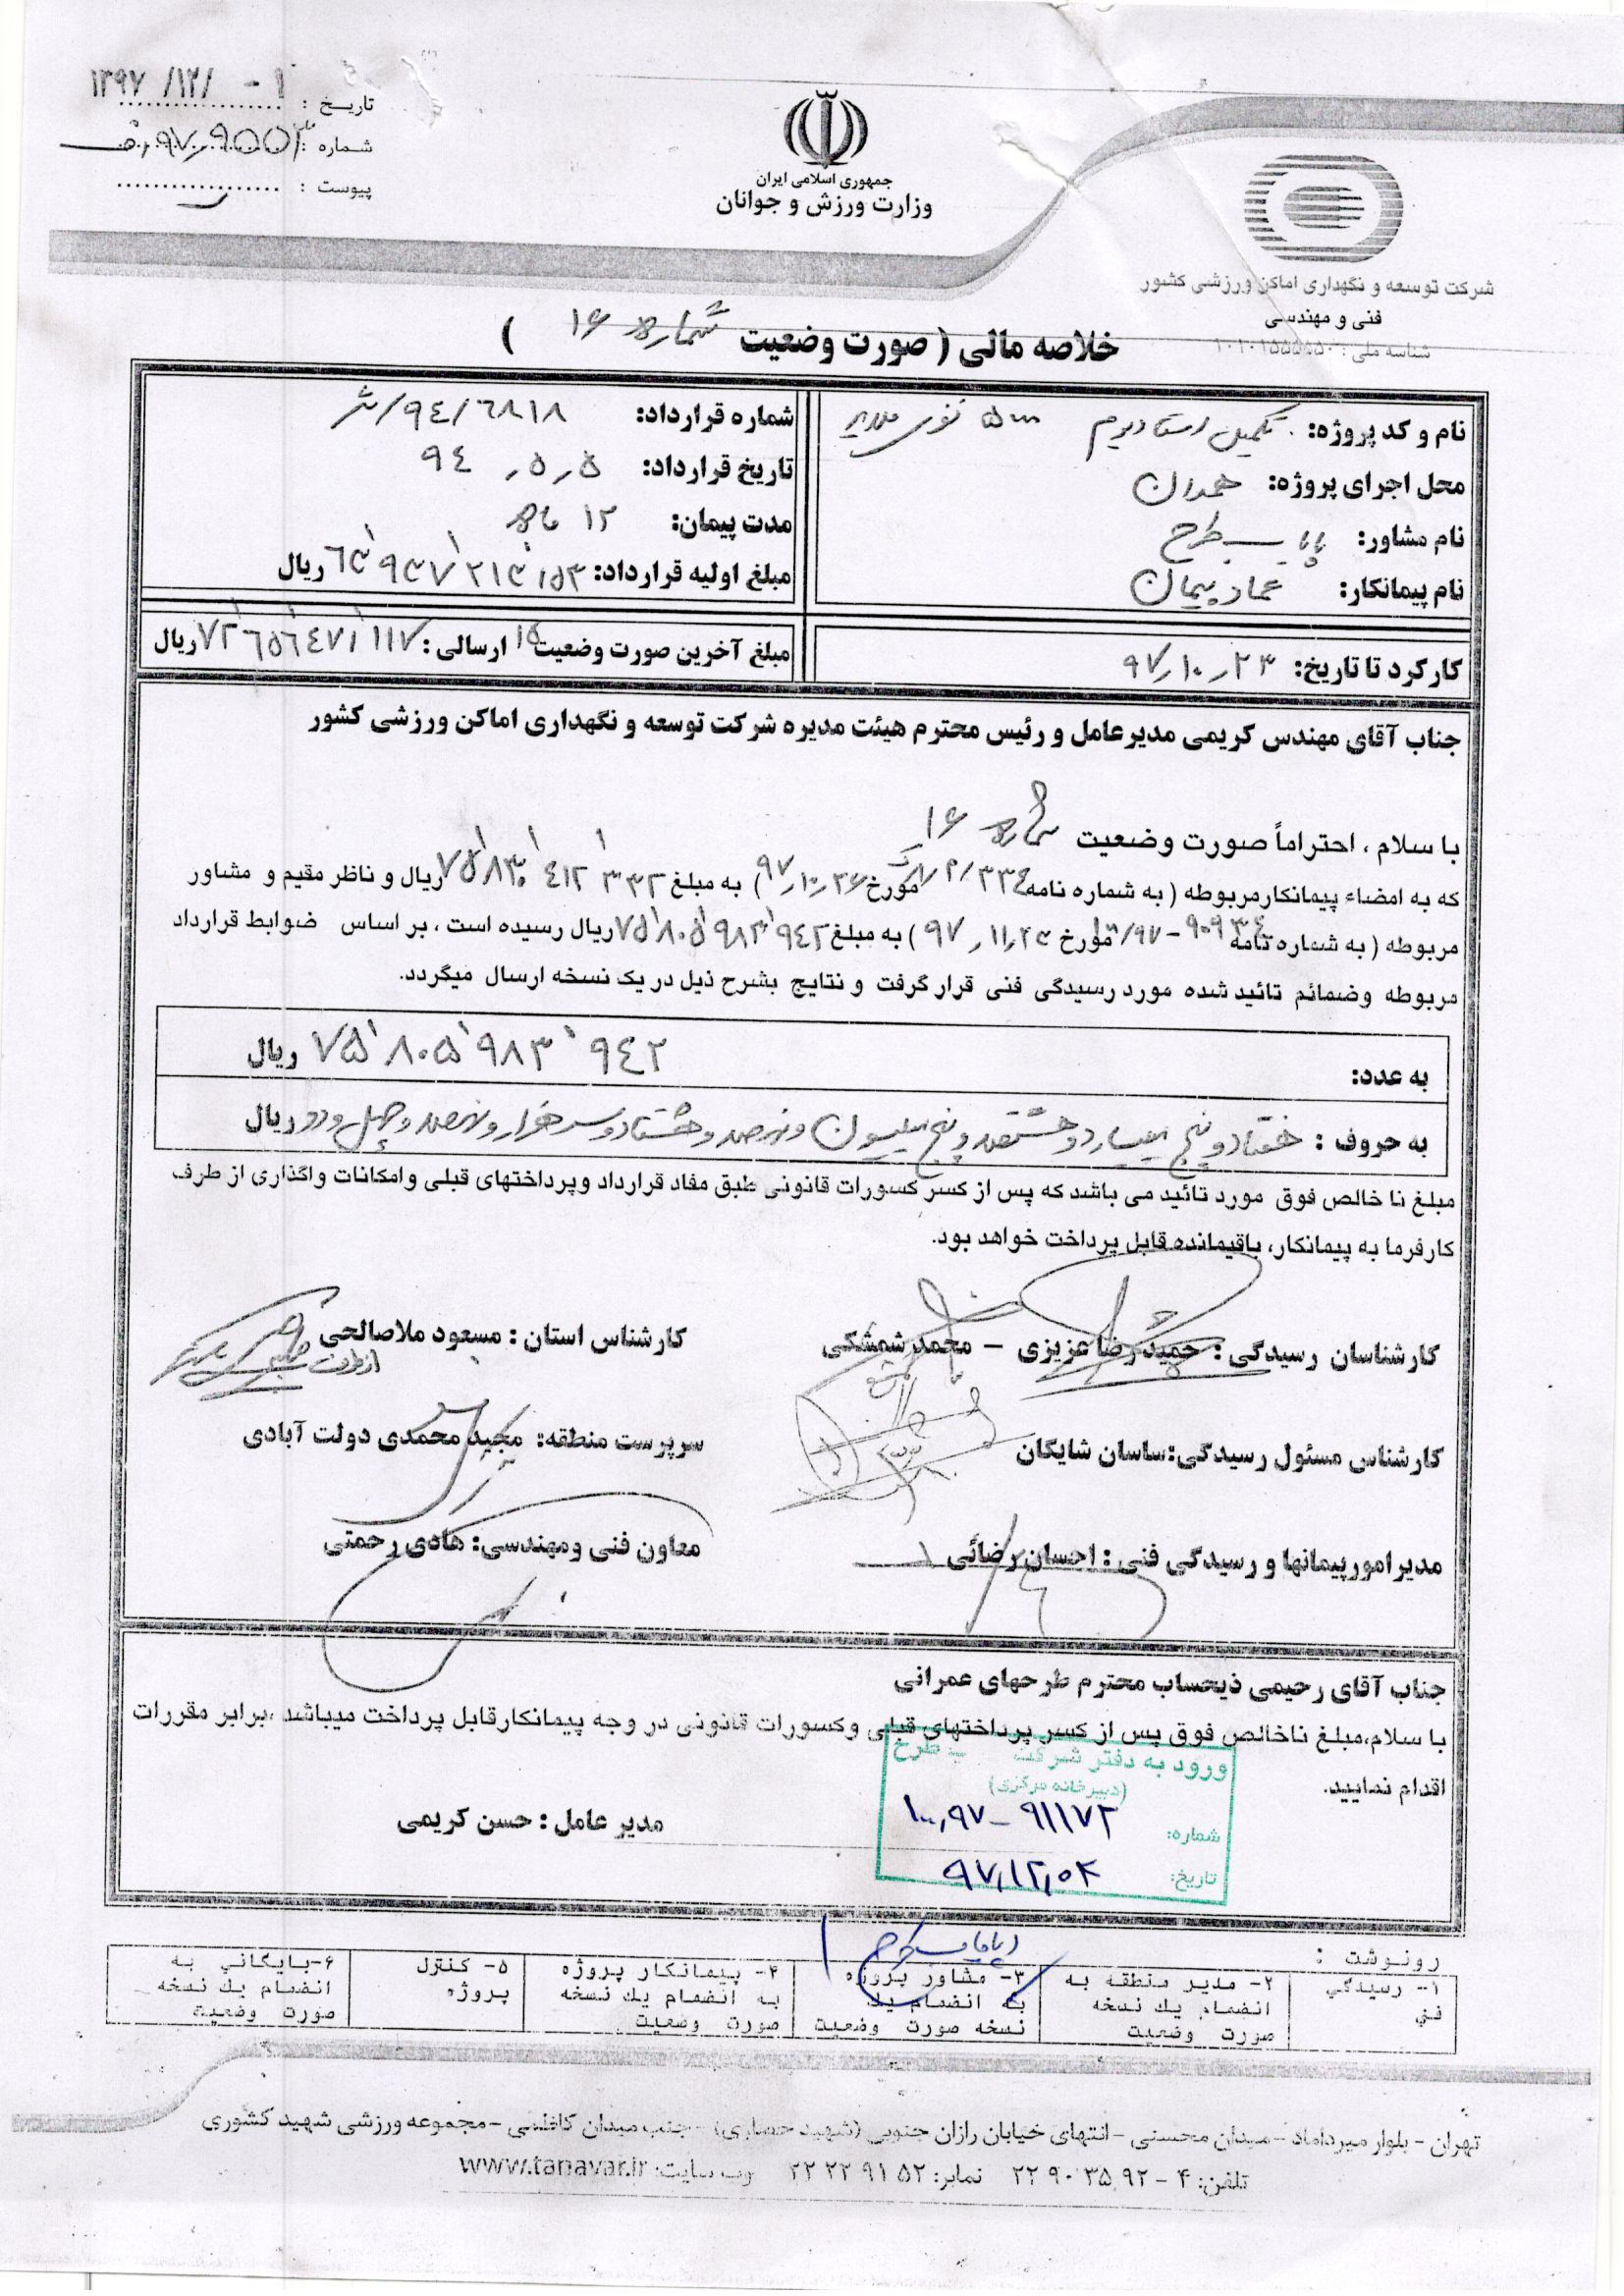 تاریخ : ۱۳۹۷/۱۲/۰۱
شماره :
پیوست :
جمهوری اسلامی ایران
وزارت ورزش و جوانان
شرکت توسعه و نگهداری اماکن ورزشی کشور
فنی و مهندسی
شناسه ملی :
خلاصه مالی ( صورت وضعیت شماره ۱۶ )
نام و کد پروژه: تکمیل استادیوم ۵۰۰۰ نفری ملایر
شماره قرارداد: ۹٤/٦۸۱۸/ش
محل اجرای پروژه: همدان
تاریخ قرارداد: ۹٤,۵,۵
نام مشاور: پایاب طرح
مدت پیمان: ۱۲ ماه
نام پیمانکار: عماد پیمان
مبلغ اولیه قرارداد: ٦۳٬۹۳۷٬۲۱۳٬۱۵۳ ریال
کارکرد تا تاریخ: ۹۷,۱۰,۲۳
مبلغ آخرین صورت وضعیت ۱۵ ارسالی : ۷۲٬٦۵٦٬٤۷۱٬۱۱۷ ریال
جناب آقای مهندس کریمی مدیرعامل و رئیس محترم هیئت مدیره شرکت توسعه و نگهداری اماکن ورزشی کشور
با سلام ، احتراماً صورت وضعیت شماره ۱۶
که به امضاء پیمانکارمربوطه ( به شماره نامه مورخ ۹۷,۱۰,۲۶ ) به مبلغ ۷۵٬۸۳۰٬٤۱۲٬۳۳۲ ریال و ناظر مقیم و مشاور
مربوطه ( به شماره نامه ۹۰۹۳٤-۱۰۰/۹۷ مورخ ۹۷,۱۱,۲۳ ) به مبلغ ۷۵٬۸۰۵٬۹۸۳٬۹٤۲ ریال رسیده است ، بر اساس ضوابط قرارداد
مربوطه وضمائم تائید شده مورد رسیدگی فنی قرار گرفت و نتایج بشرح ذیل در یک نسخه ارسال میگردد.
به عدد: ۷۵٬۸۰۵٬۹۸۳٬۹٤۲ ریال
به حروف : هفتاد و پنج میلیارد و هشتصد و پنج میلیون و نهصد و هشتاد و سه هزار و نهصد و چهل و دو ریال
مبلغ نا خالص فوق مورد تائید می باشد که پس از کسر کسورات قانونی طبق مفاد قرارداد وپرداختهای قبلی وامکانات واگذاری از طرف
کارفرما به پیمانکار، باقیمانده قابل پرداخت خواهد بود.
کارشناسان رسیدگی : حمیدرضا عزیزی – محمد شمشکی
کارشناس استان : مسعود ملاصالحی
از طرف
کارشناس مسئول رسیدگی:ساسان شایگان
سرپرست منطقه: مجید محمدی دولت آبادی
مدیرامورپیمانها و رسیدگی فنی : احسان رضائی
معاون فنی ومهندسی: هادی رحمتی
جناب آقای رحیمی ذیحساب محترم طرحهای عمرانی
با سلام،مبلغ ناخالص فوق پس از کسر پرداختهای قبلی وکسورات قانونی در وجه پیمانکارقابل پرداخت میباشد ،برابر مقررات
اقدام نمایید.
مدیر عامل : حسن کریمی
ورود به دفتر شرکت طرح
(دبیرخانه مرکزی)
شماره: ۱۰۰,۹۷-۹۱۱۷۲
تاریخ: ۹۷,۱۲,۰۴
رونوشت :
۱- رسیدگي فني
۲- مدیر منطقه به انضمام یك نسخه صورت وضعیت
۳- مشاور پروژه به انضمام یك نسخه صورت وضعیت
۴- پیمانکار پروژه به انضمام یك نسخه صورت وضعیت
۵- کنترل پروژه
۶-بایگاني به انضمام یك نسخه صورت وضعیت
تهران - بلوار میرداماد - میدان محسنی - انتهای خیابان رازان جنوبی (شهید حصاری) - جنب میدان کاظمی - مجموعه ورزشی شهید کشوری
تلفن: ۴ - ۲۲ ۹۰ ۳۵ ۹۲ نمابر: ۲۲ ۲۲ ۹۱ ۵۲ وب سایت: www.tanavar.ir